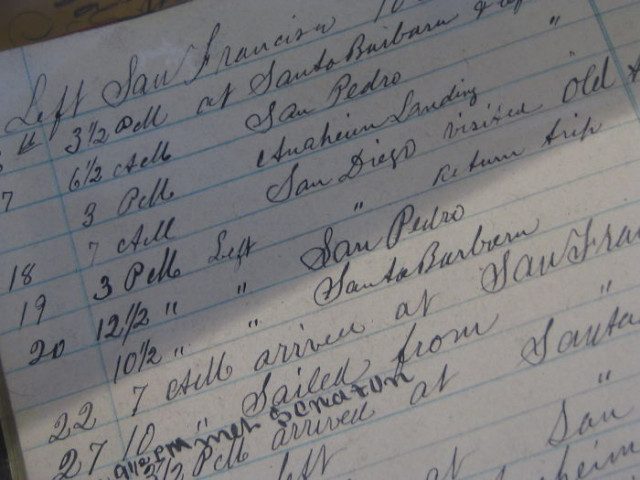 Left San Francisco 10
3 1/2 PM at Santa Barbara & left
6 1/2 AM San Pedro "
7 3 PM Anaheim Landing
7 AM San Diego visited Old
18 3 PM Left " Return trip
19 12 1/2 " " San Pedro
20 10 1/2 " " Santa Barbara
22 7 AM arrived at San Fran
27 10 " Sailed from "
9 1/2 PM met Senator
3 1/2 PM arrived at Santa
left "
at San